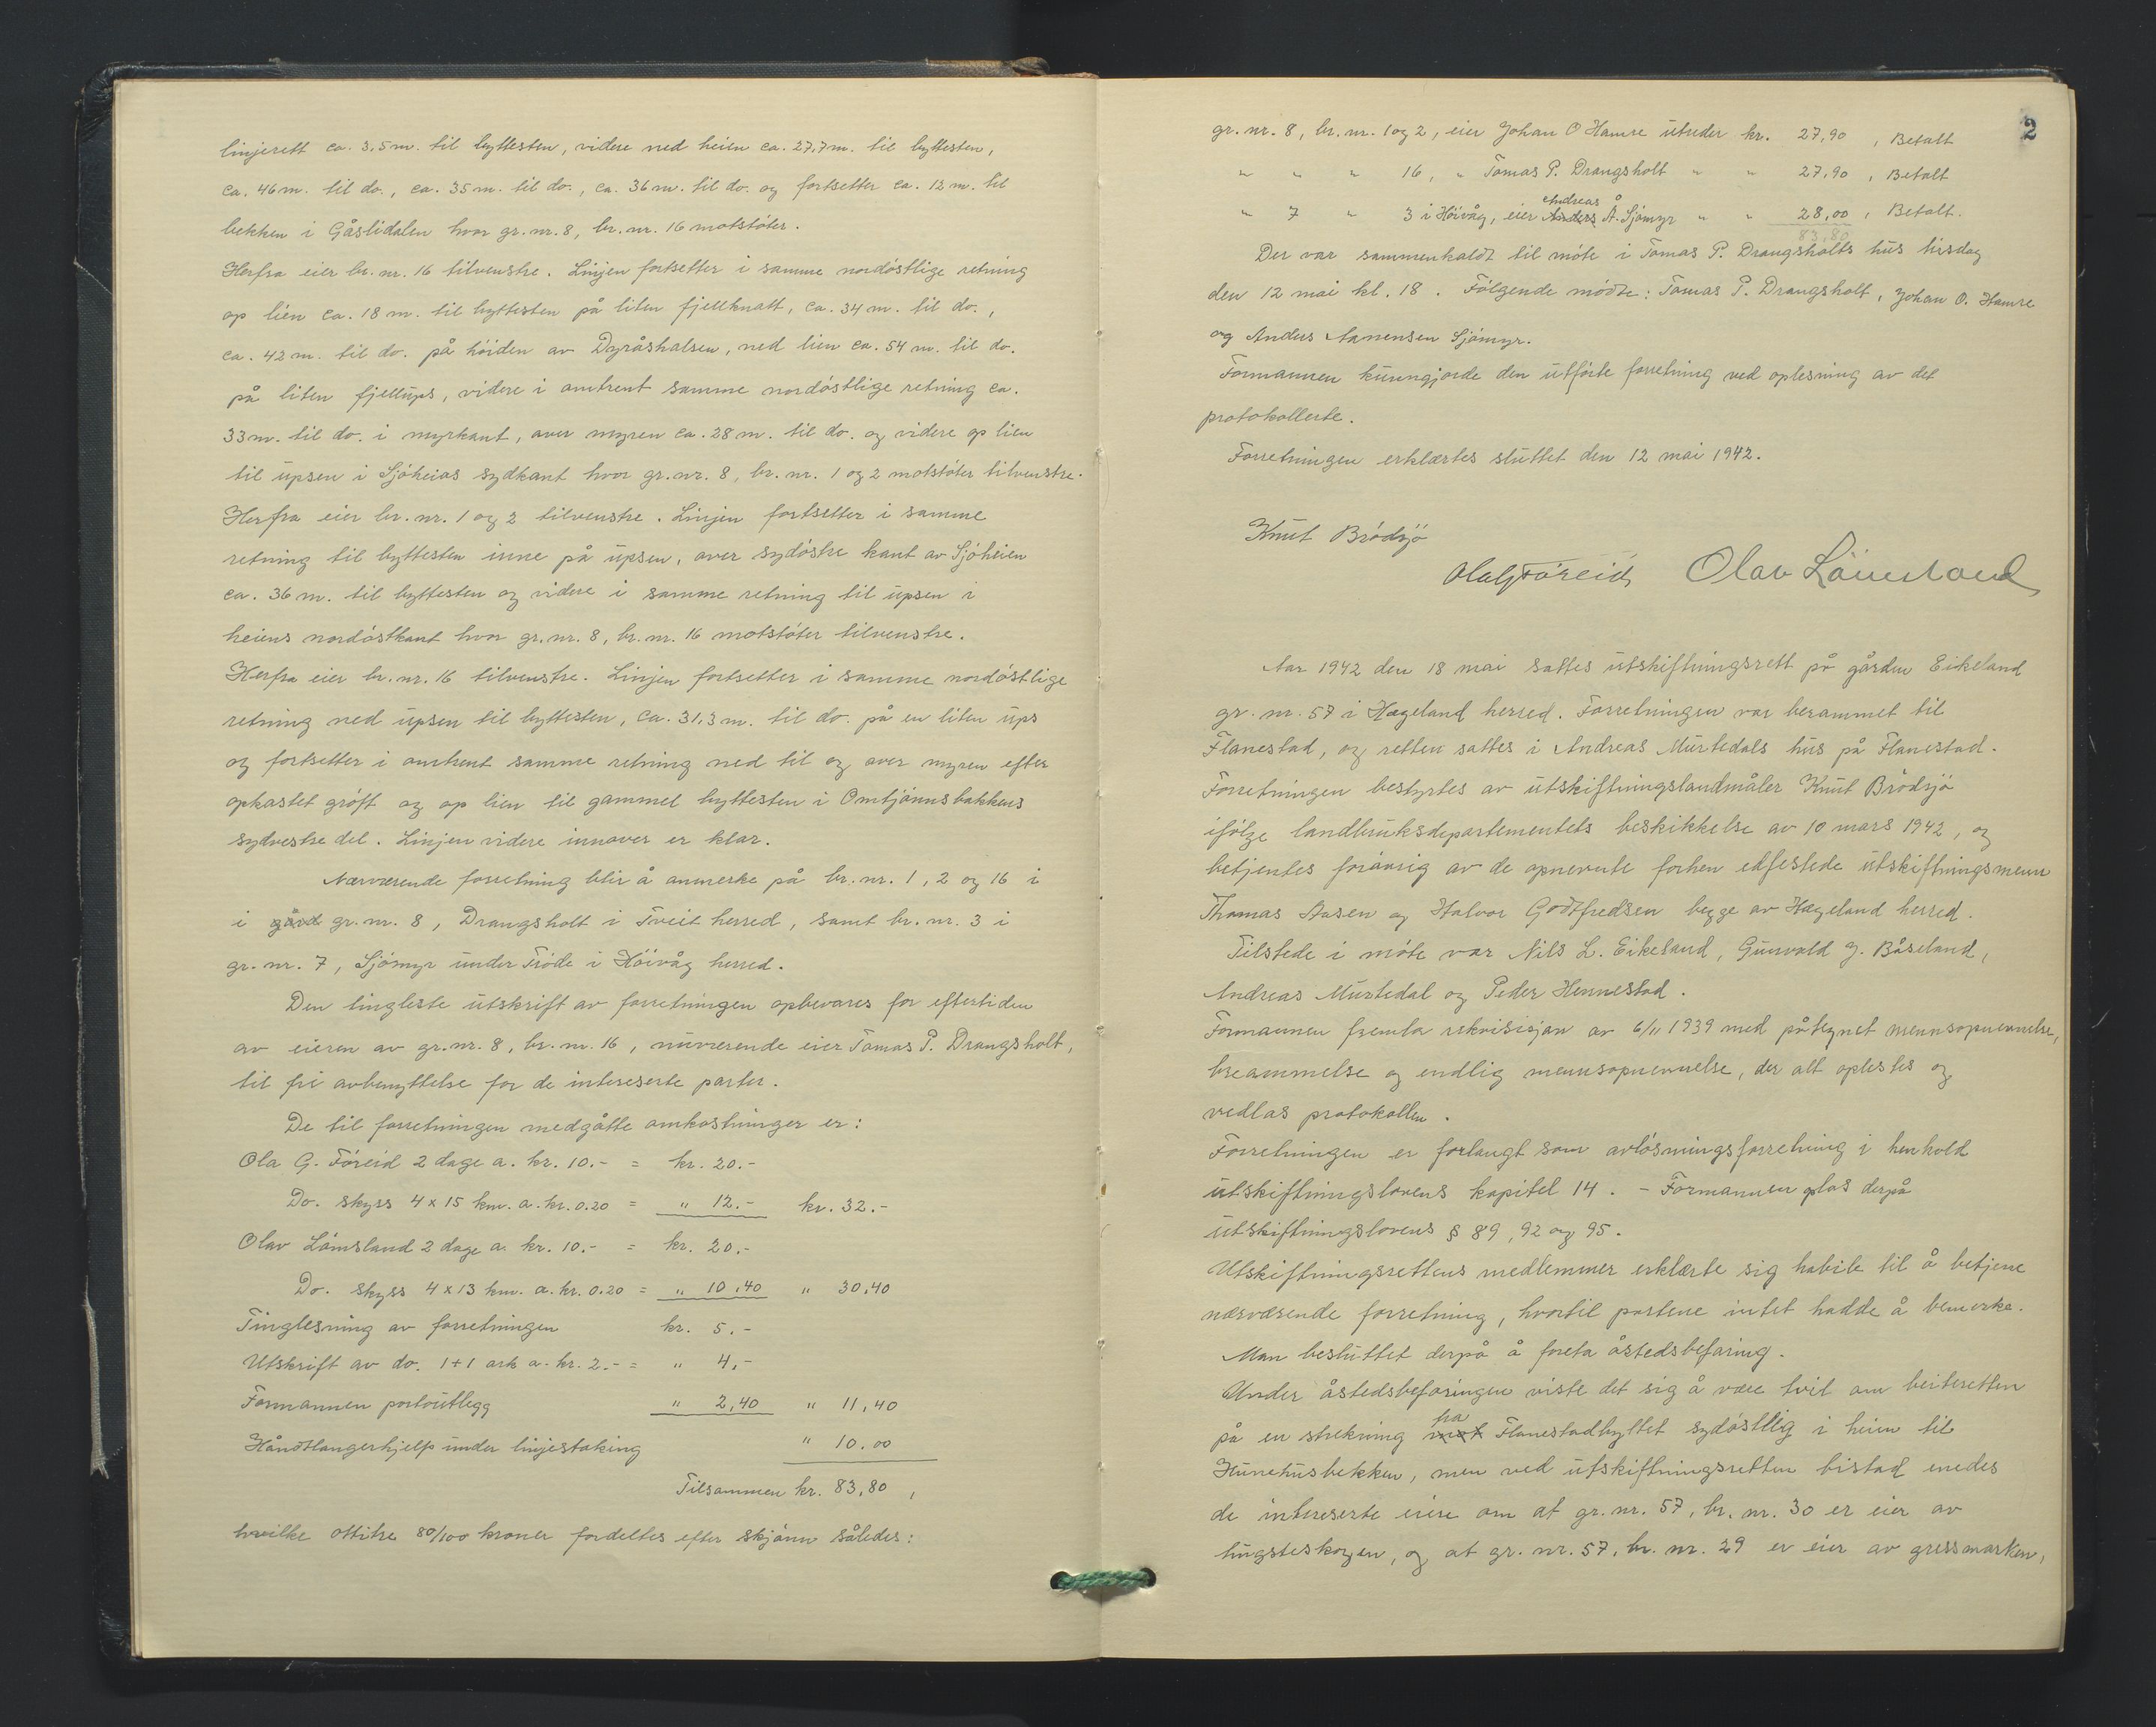 linjerett ca. 3,5 m. til byttesten, videre ned heien ca. 27,7 m. til byttesten,
ca. 46 m. til do., ca. 35 m. til do., ca. 36 m. til do. og fortsetter ca. 12 m. til
bekken i Gåslidalen hvor gr. nr. 8, br. nr. 16 motstöter.
Herfra eier br. nr. 16 tilvenstre. Linjen fortsetter i samme nordöstlige retning
op lien ca. 18 m. til byttesten på liten fjellknatt, ca. 34 m. til do.,
ca. 42 m. til do. på höiden av Dyråshalsen, ned lien ca. 54 m. til do.
på liten fjellups, videre i omtrent samme nordöstlige retning ca.
33 m. til do. i myrkant, over myren ca. 28 m. til do. og videre op lien
til upsen i Sjöheias sydkant hvor gr. nr. 8, br. nr. 1 og 2 motstöter tilvenstre.
Herfra eier br. nr. 1 og 2 tilvenstre. Linjen fortsetter i samme
retning til byttesten inne på upsen, over sydöstre kant av Sjöheien
ca. 36 m. til byttesten og videre i samme retning til upsen i
heiens nordöstkant hvor gr. nr. 8, br. nr. 16 motstöter tilvenstre.
Herfra eier br. nr. 16 tilvenstre. Linjen fortsetter i samme nordöstlige
retning ned upsen til byttesten, ca. 31,3 m. til do. på en liten ups
og fortsetter i omtrent samme retning ned til og over myren efter
opkastet gröft og op lien til gammel byttesten i Omtjönnsbakkens
sydvestre del. Linjen videre innover er klar.
Nærværende forretning blir å anmerke på br. nr. 1, 2 og 16 i
i gård gr. nr. 8, Drangsholt i Tveit herred, samt br. nr. 3 i
gr. nr. 7, Sjömyr under Tröde i Höivåg herred.
Den tingleste utskrift av forretningen opbevares for eftertiden
av eieren av gr. nr. 8, br. nr. 16, nuværende eier Tomas P. Drangsholt,
til fri avbenyttelse for de intereserte parter.
De til forretningen medgåtte omkostninger er:
Ola G. Föreid 2 dage a. kr. 10.- = kr. 20.-
Do. skyss 4 x 15 km. a. kr. 0.20 = " 12.- kr. 32.-
Olav Lömsland 2 dage a. kr. 10.- = kr. 20.-
Do. skyss 4 x 13 km. a. kr. 0.20 = " 10,40 " 30,40
Tinglesning av forretningen kr. 5.-
Utskrift av do. 1+1 ark a. kr. 2.- = " 4,-
Formannen portoutlegg " 2,40 " 11,40
Håndtlangerhjelp under linjestaking " 10.00
Tilsammen kr. 83,80,
hvilke ottitre 80/100 kroner fordeltes efter skjönn således:
2
gr. nr. 8, br. nr. 1 og 2, eier Johan O Hamre utreder kr. 27,90, Betalt
" " " 16, " Tomas P. Drangsholt " " 27,90, Betalt
Andreas
" 7 " 3 i Höivåg, eier Anders Å. Sjömyr " " 28,00, Betalt.
83,80
Der var sammenkaldt til möte i Tomas P. Drangsholts hus tirsdag
den 12 mai kl. 18. Fölgende mödte: Tomas P. Drangsholt, Johan O. Hamre
og Anders Aanensen Sjömyr.
Formannen kunngjorde den utförte forretning ved oplesning av det
protokollerte.
Forretningen erklærtes sluttet den 12 mai 1942.
Knut Brödsjö
Ola G Föreid Olav Lömsland
Aar 1942 den 18 mai sattes utskiftningsrett på gården Eikeland
gr. nr. 57 i Hægeland herred. Forretningen var berammet til
Flanestad, og retten sattes i Andreas Murtedals hus på Flanestad.
Forretningen bestyrtes av utskiftningslandmåler Knut Brödsjö
ifölge landbruksdepartementets beskikkelse av 10 mars 1942, og
betjentes forövrig av de opnevnte forhen edfestede utskiftningsmenn
Thomas Aasen og Halvor Godtfredsen begge av Hægeland herred.
Tilstede i möte var Nils L. Eikeland, Gunvald J. Båseland,
Andreas Murtedal og Peder Hennestad.
Formannen fremla rekvisisjon av 6/11 1939 med påtegnet mennsopnevnelse,
breammelse og endlig mennsopnevnelse, der alt oplestes og
vedlas protokollen.
Forretningen er forlangt som avlösningsforretning i henhold
utskiftningslovens kapitel 14. - Formannen oplas derpå
utskiftningslovens § 89, 92 og 95.
Utskiftningsrettens medlemmer erklærte sig habile til å betjene
nærværende forretning, hvortil partene intet hadde å bemerke.
Man besluttet derpå å foreta åstedsbefaring.
Under åstedsbefaringen viste det sig å være tvil om beiteretten
fra
på en strekning mot Flanestadbyttet sydöstlig i heien til
Hunehusbekken, men ved utskiftningsretten bistad enedes
de intereserte eiere om at gr. nr. 57, br. nr. 30 er eier av
hugsteskogen, og at gr. nr. 57, br. nr. 29 er eier av gressmarken,